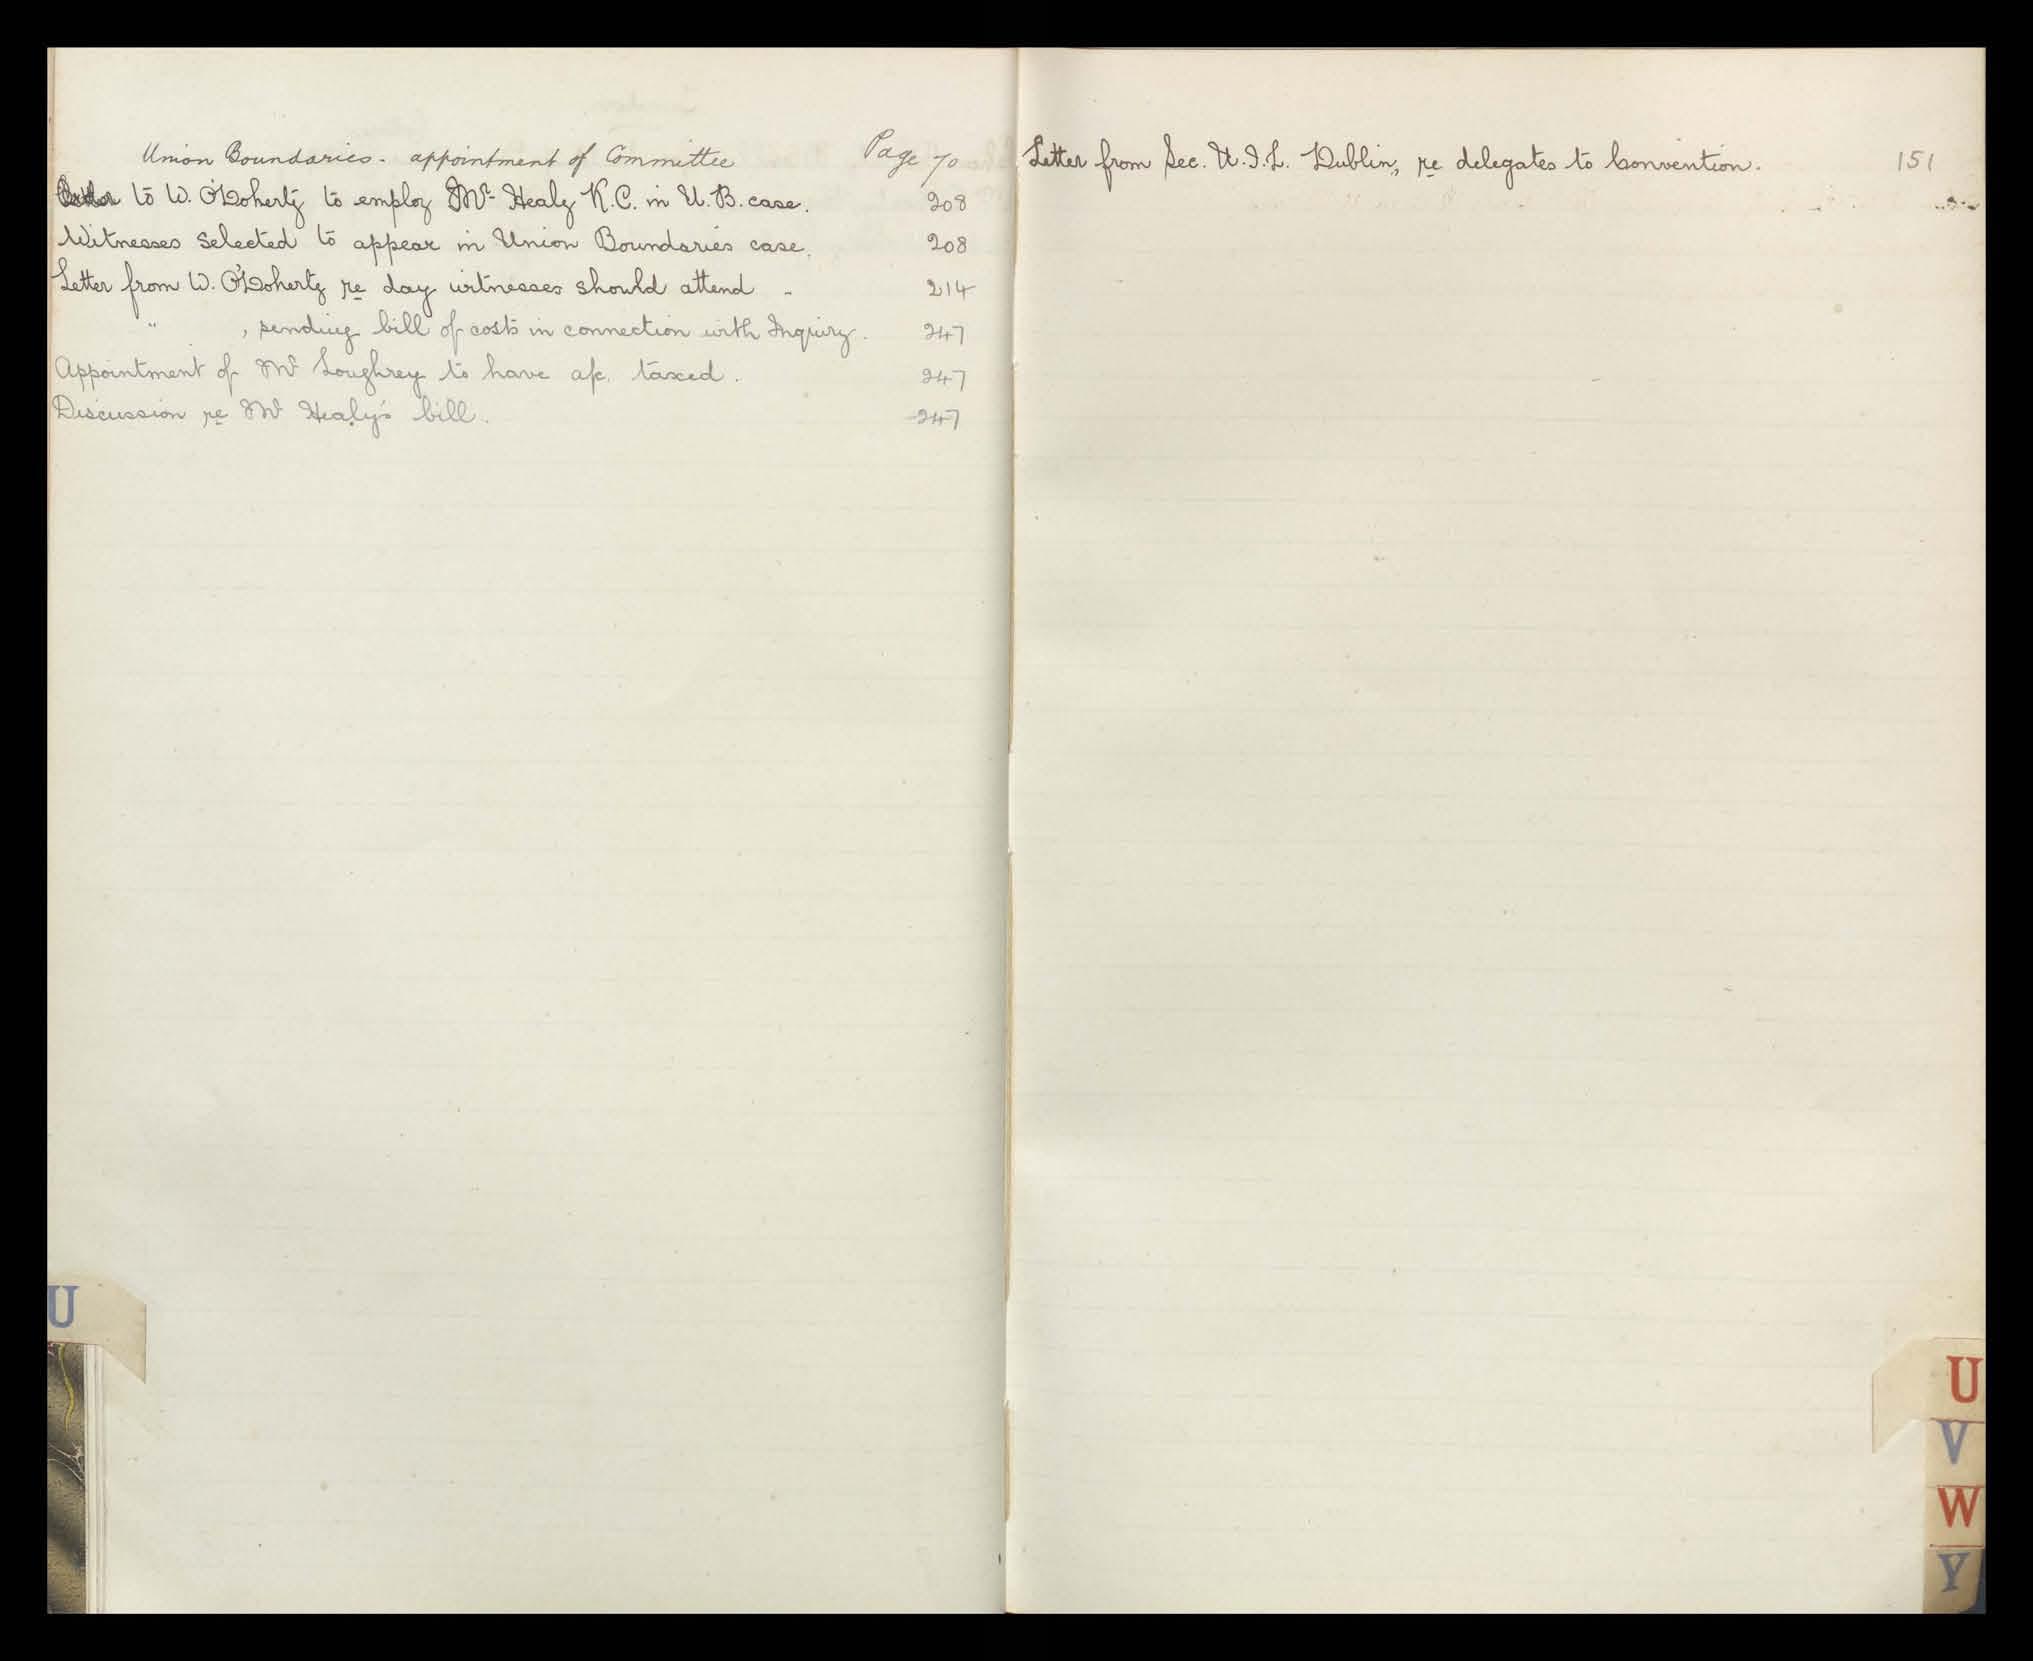 Union Boundaries - appointment of Committee Page 70
Order to W. O'Doherty to employ Mr Healy K.C. in U.B. case. 208
Witnesses selected to appear in Union Boundaries case. 208
Letter from W. O'Doherty re day witnesses should attend - 214
" , sending bill of costs in connection with Inquiry. 247
Appointment of Mr Loughrey to have a/c. taxed. 247
Discussion re Mr Healy's bill. 247
U
Letter from Sec. U.I.L. Dublin, re delegates to Convention. 151
U
V
W
Y